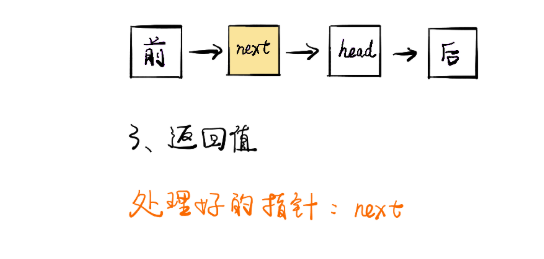 前 → next → head → 后
3、返回值
处理好的指针：next